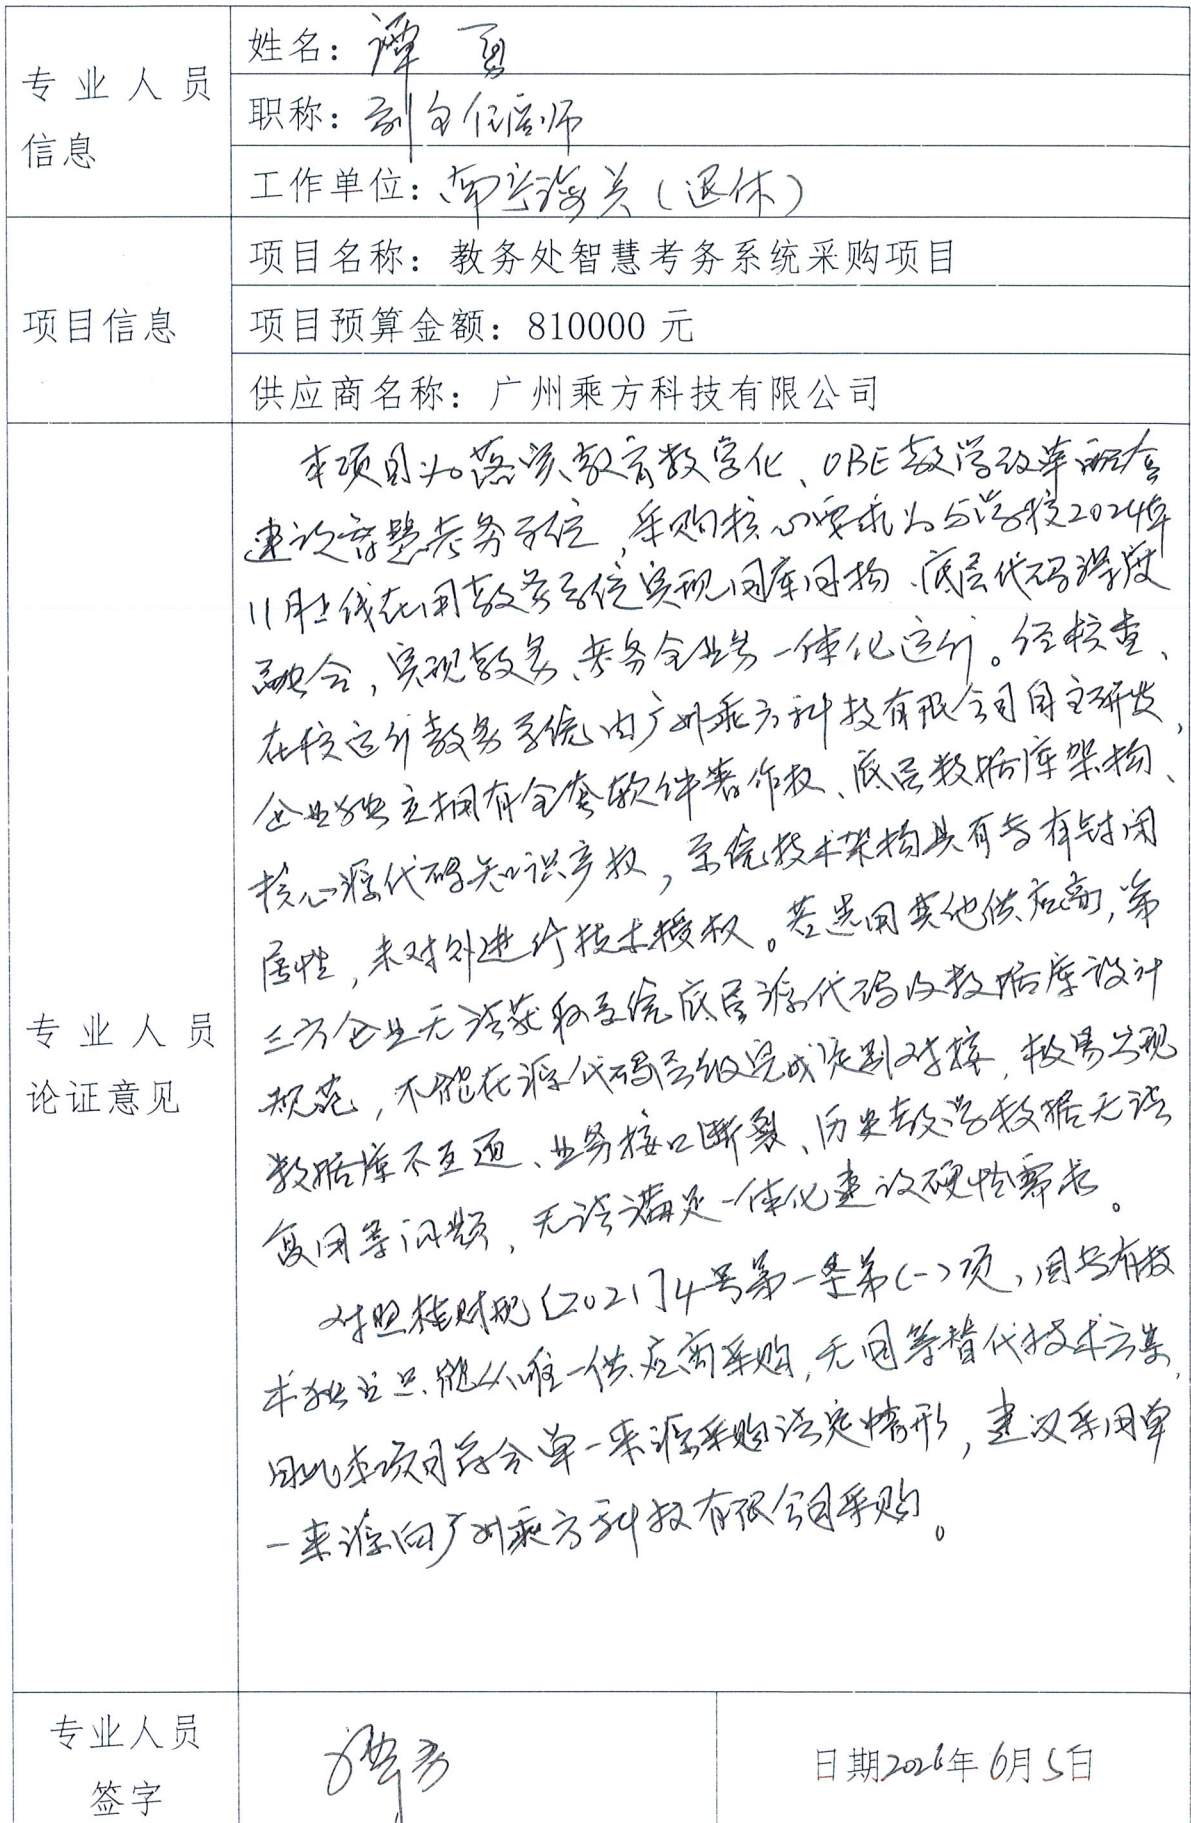 专业人员
信息
姓名：谭
职称：副主任医师
工作单位：南宁海关（退休）
项目信息
项目名称：教务处智慧考务系统采购项目
项目预算金额：810000 元
供应商名称：广州乘方科技有限公司
专业人员
论证意见
本项目为落实教育数字化、OBE教学改革配套
建设智慧考务系统，采购核心要求为与学校2024年
11月上线在用教务系统实现同库同构、底层代码深度
融合，实现教务、考务全业务一体化运行。经核查，
在校运行教务系统由广州乘方科技有限公司自主研发，
企业独立拥有全套软件著作权、底层数据库架构、
核心源代码知识产权，系统技术架构具有专有封闭
属性，未对外进行技术授权。若选用其他供应商，第
三方企业无法获取系统底层源代码及数据库设计
规范，不能在源代码层级完成定制对接，极易出现
数据库不互通、业务接口断裂、历史教学数据无法
复用等问题，无法满足一体化建设硬性需求。
对照桂财规〔2021〕4号第一条第(一)项，因专有技
术独占只能从唯一供应商采购，无同等替代技术方案，
因此本项目符合单一来源采购法定情形，建议采用单
一来源向广州乘方科技有限公司采购。
专业人员
签字
谭
日期2026年6月5日